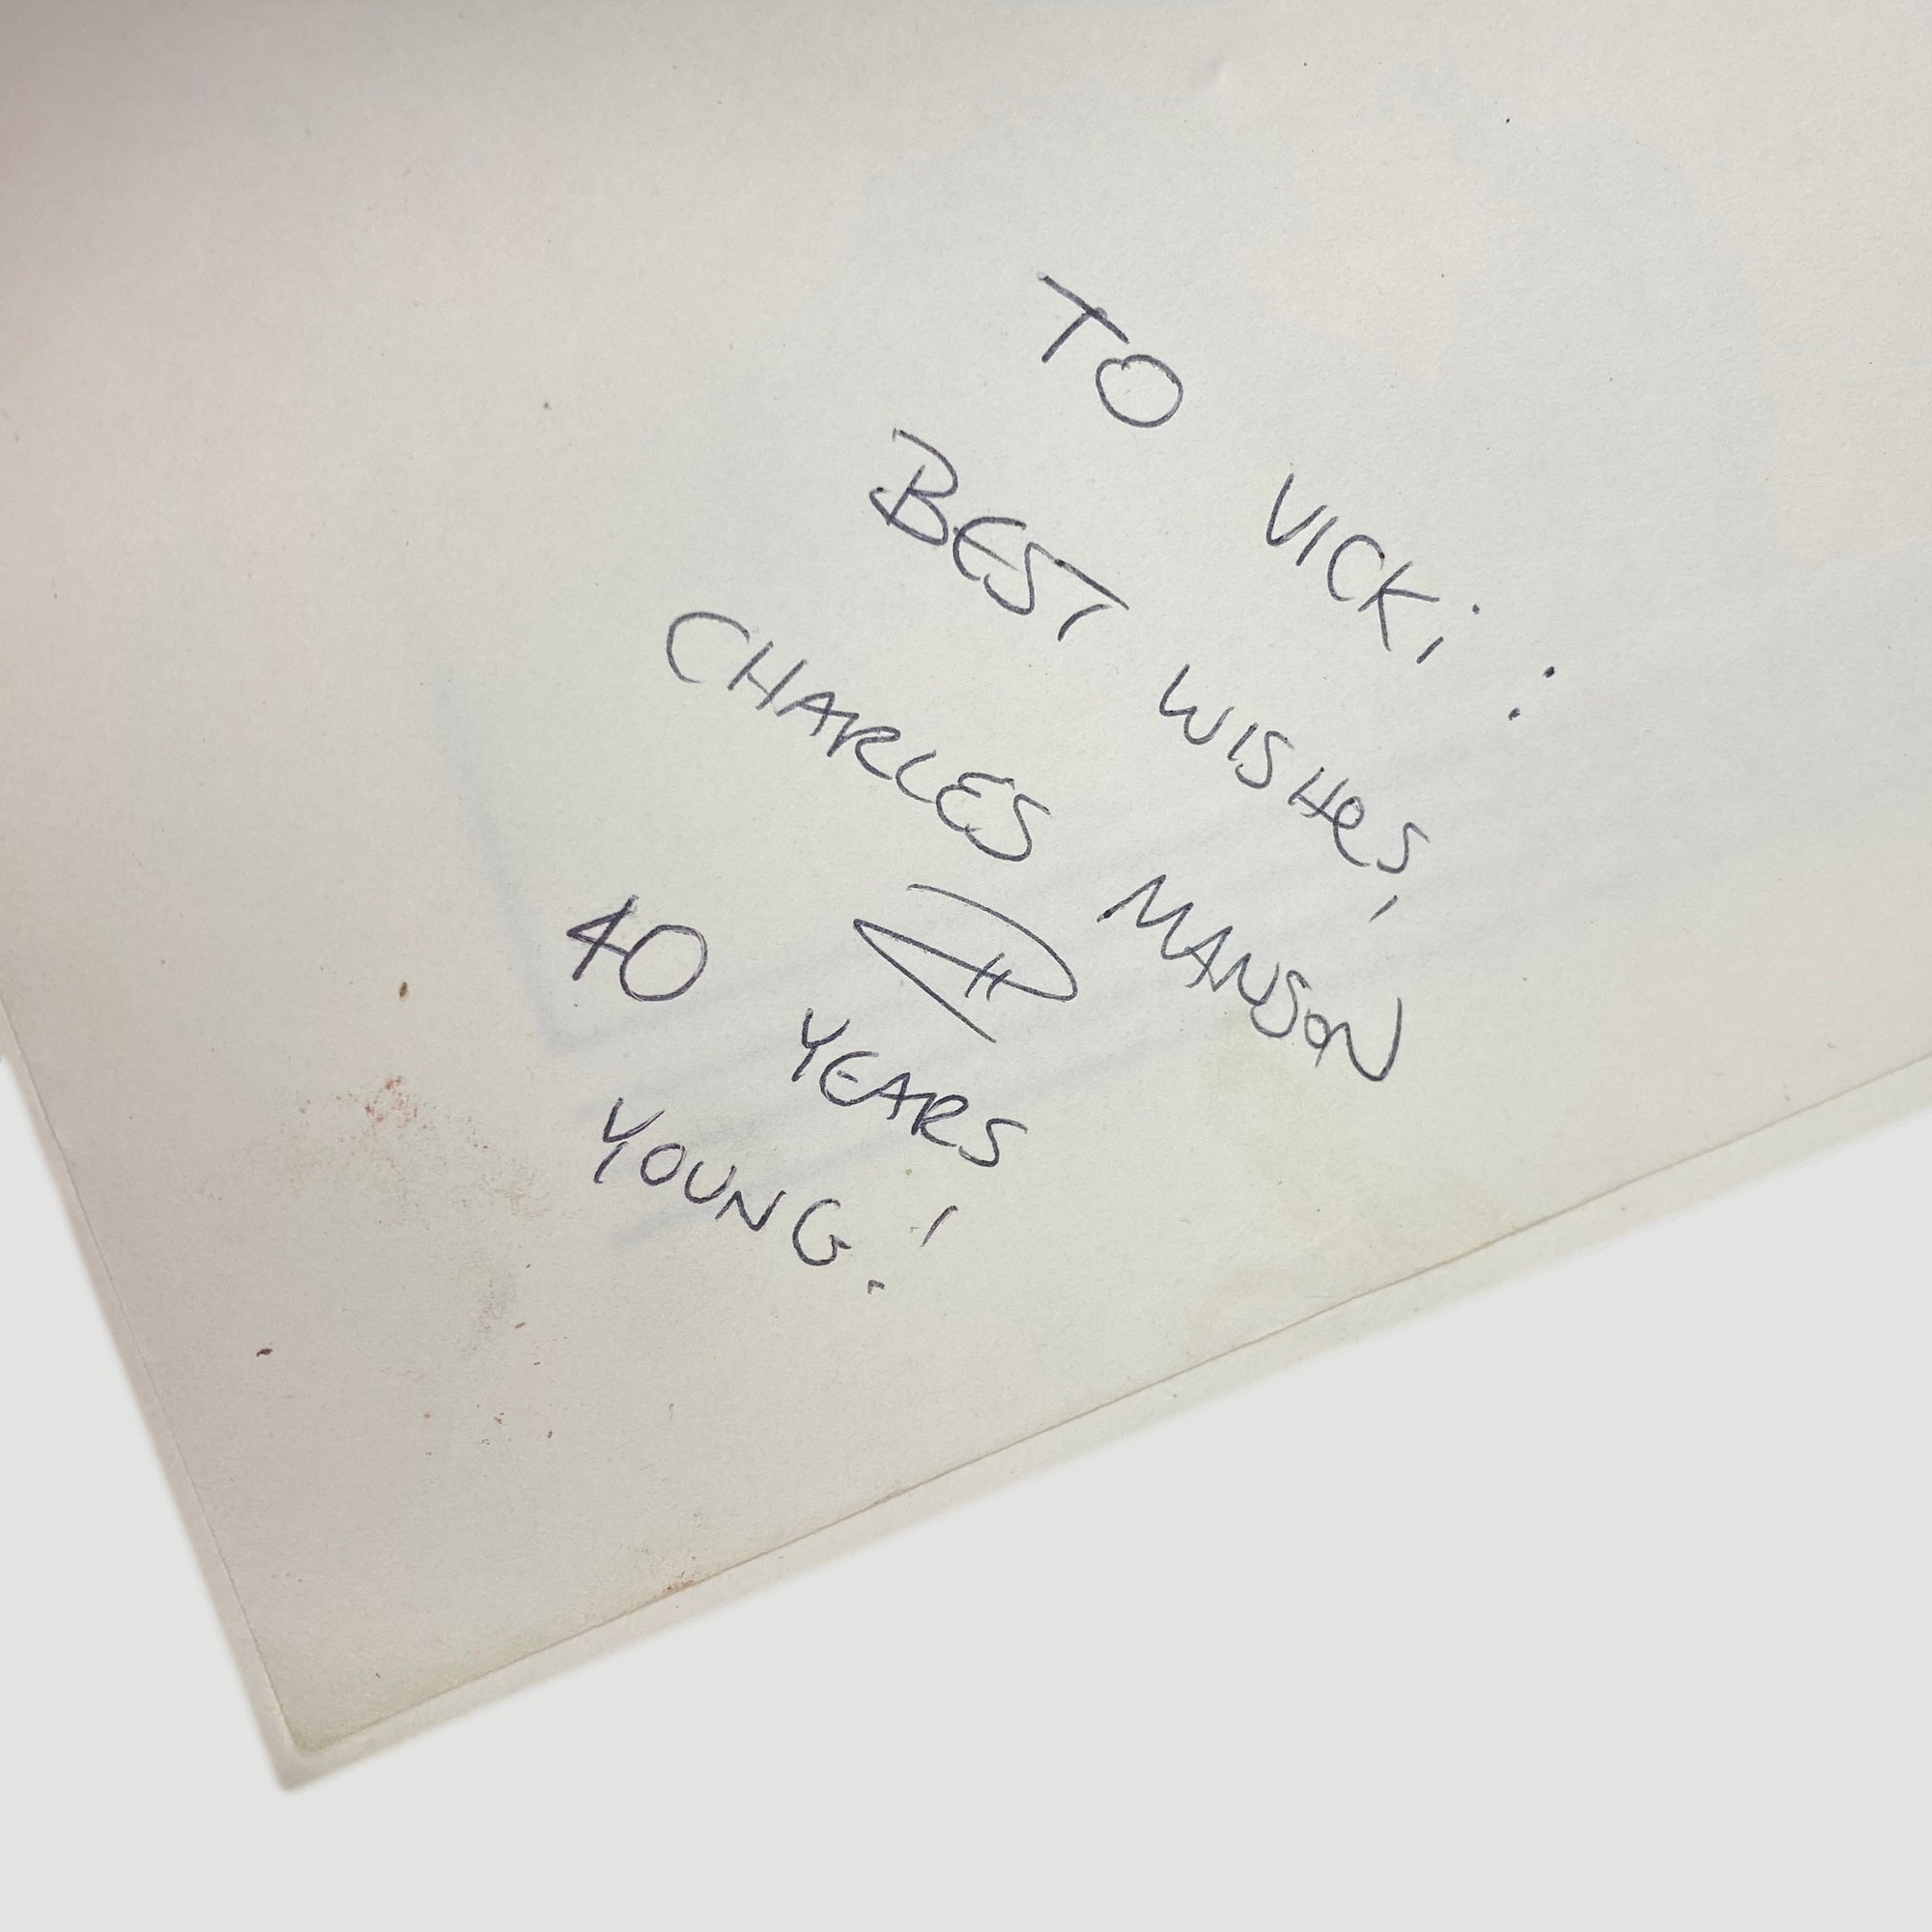 TO VICKi:
BEST WISHES,
CHARLES MANSON
40 YEARS
YOUNG!